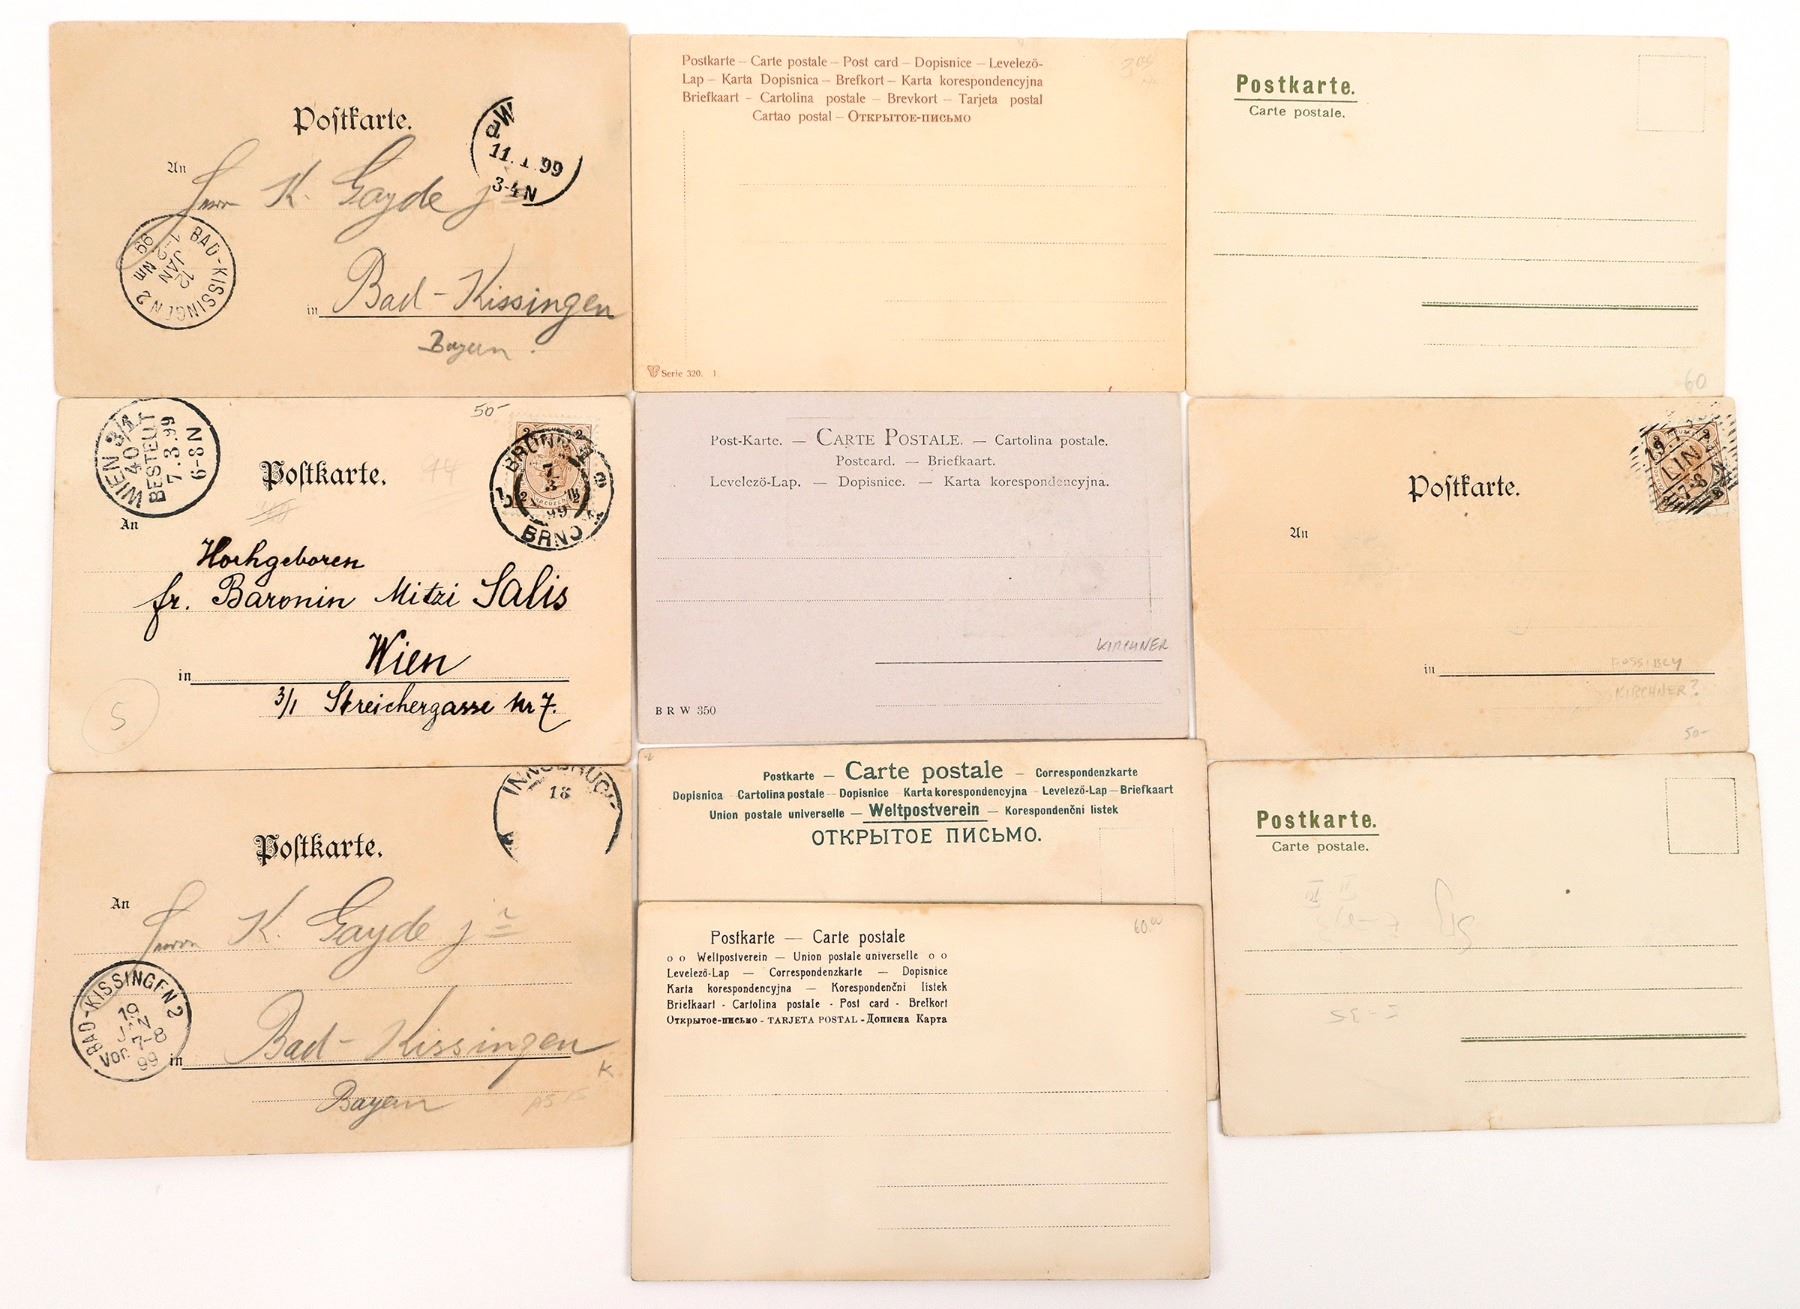 Postkarte.
W
11. 1. 99
3-4 N
An
Herrn K. Gayde jr
BAD-KISSINGEN 2
12 JAN
1-2 Nm
99
in Bad-Kissingen
Bayern.
Postkarte – Carte postale – Post card – Dopisnice – Levelező-
Lap – Karta Dopisnica – Brefkort – Karta korespondencyjna
Briefkaart – Cartolina postale – Brevkort – Tarjeta postal
Cartao postal – Открытое-письмо
Serie 320. 1
Postkarte.
Carte postale.
60
WIEN 3/1
40
BESTELLT
7.3.99
6-8 N
50-
Postkarte.
44
BRÜNN
7
3
99
BRNO
An
Hochgeboren
fr. Baronin Mitzi Salis
in Wien
3/1 Streichergasse Nr 7.
5
Post-Karte. — CARTE POSTALE. — Cartolina postale.
Postcard. — Briefkaart.
Levelező-Lap. — Dopisnice. — Karta korespondencyjna.
KIRCHNER
B R W 350
Postkarte.
LINZ
7-8
An
in
POSSIBLY
KIRCHNER?
50-
INNSBRUCK
18
Postkarte.
An
Herrn K. Gayde jr
BAD-KISSINGEN 2
19
JAN
7-8
Vor.
99
in Bad-Kissingen
K
Bayern
Postkarte — Carte postale — Correspondenzkarte
Dopisnica - Cartolina postale - Dopisnice - Karta korespondencyjna - Levelező-Lap - Briefkaart
Union postale universelle — Weltpostverein — Korespondenční listek
ОТКРЫТОЕ ПИСЬМО.
60.00
Postkarte — Carte postale
o o Weltpostverein — Union postale universelle o o
Levelező-Lap — Correspondenzkarte — Dopisnice
Karta korespondencyjna — Korespondenční listek
Briefkaart - Cartolina postale - Post card - Brefkort
Открытое-письмо - TARJETA POSTAL - Дописна Карта
Postkarte.
Carte postale.